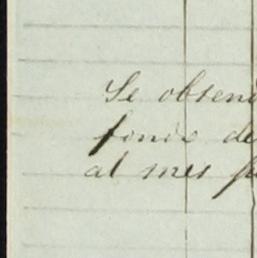 Se obsen
fondo de
al mes